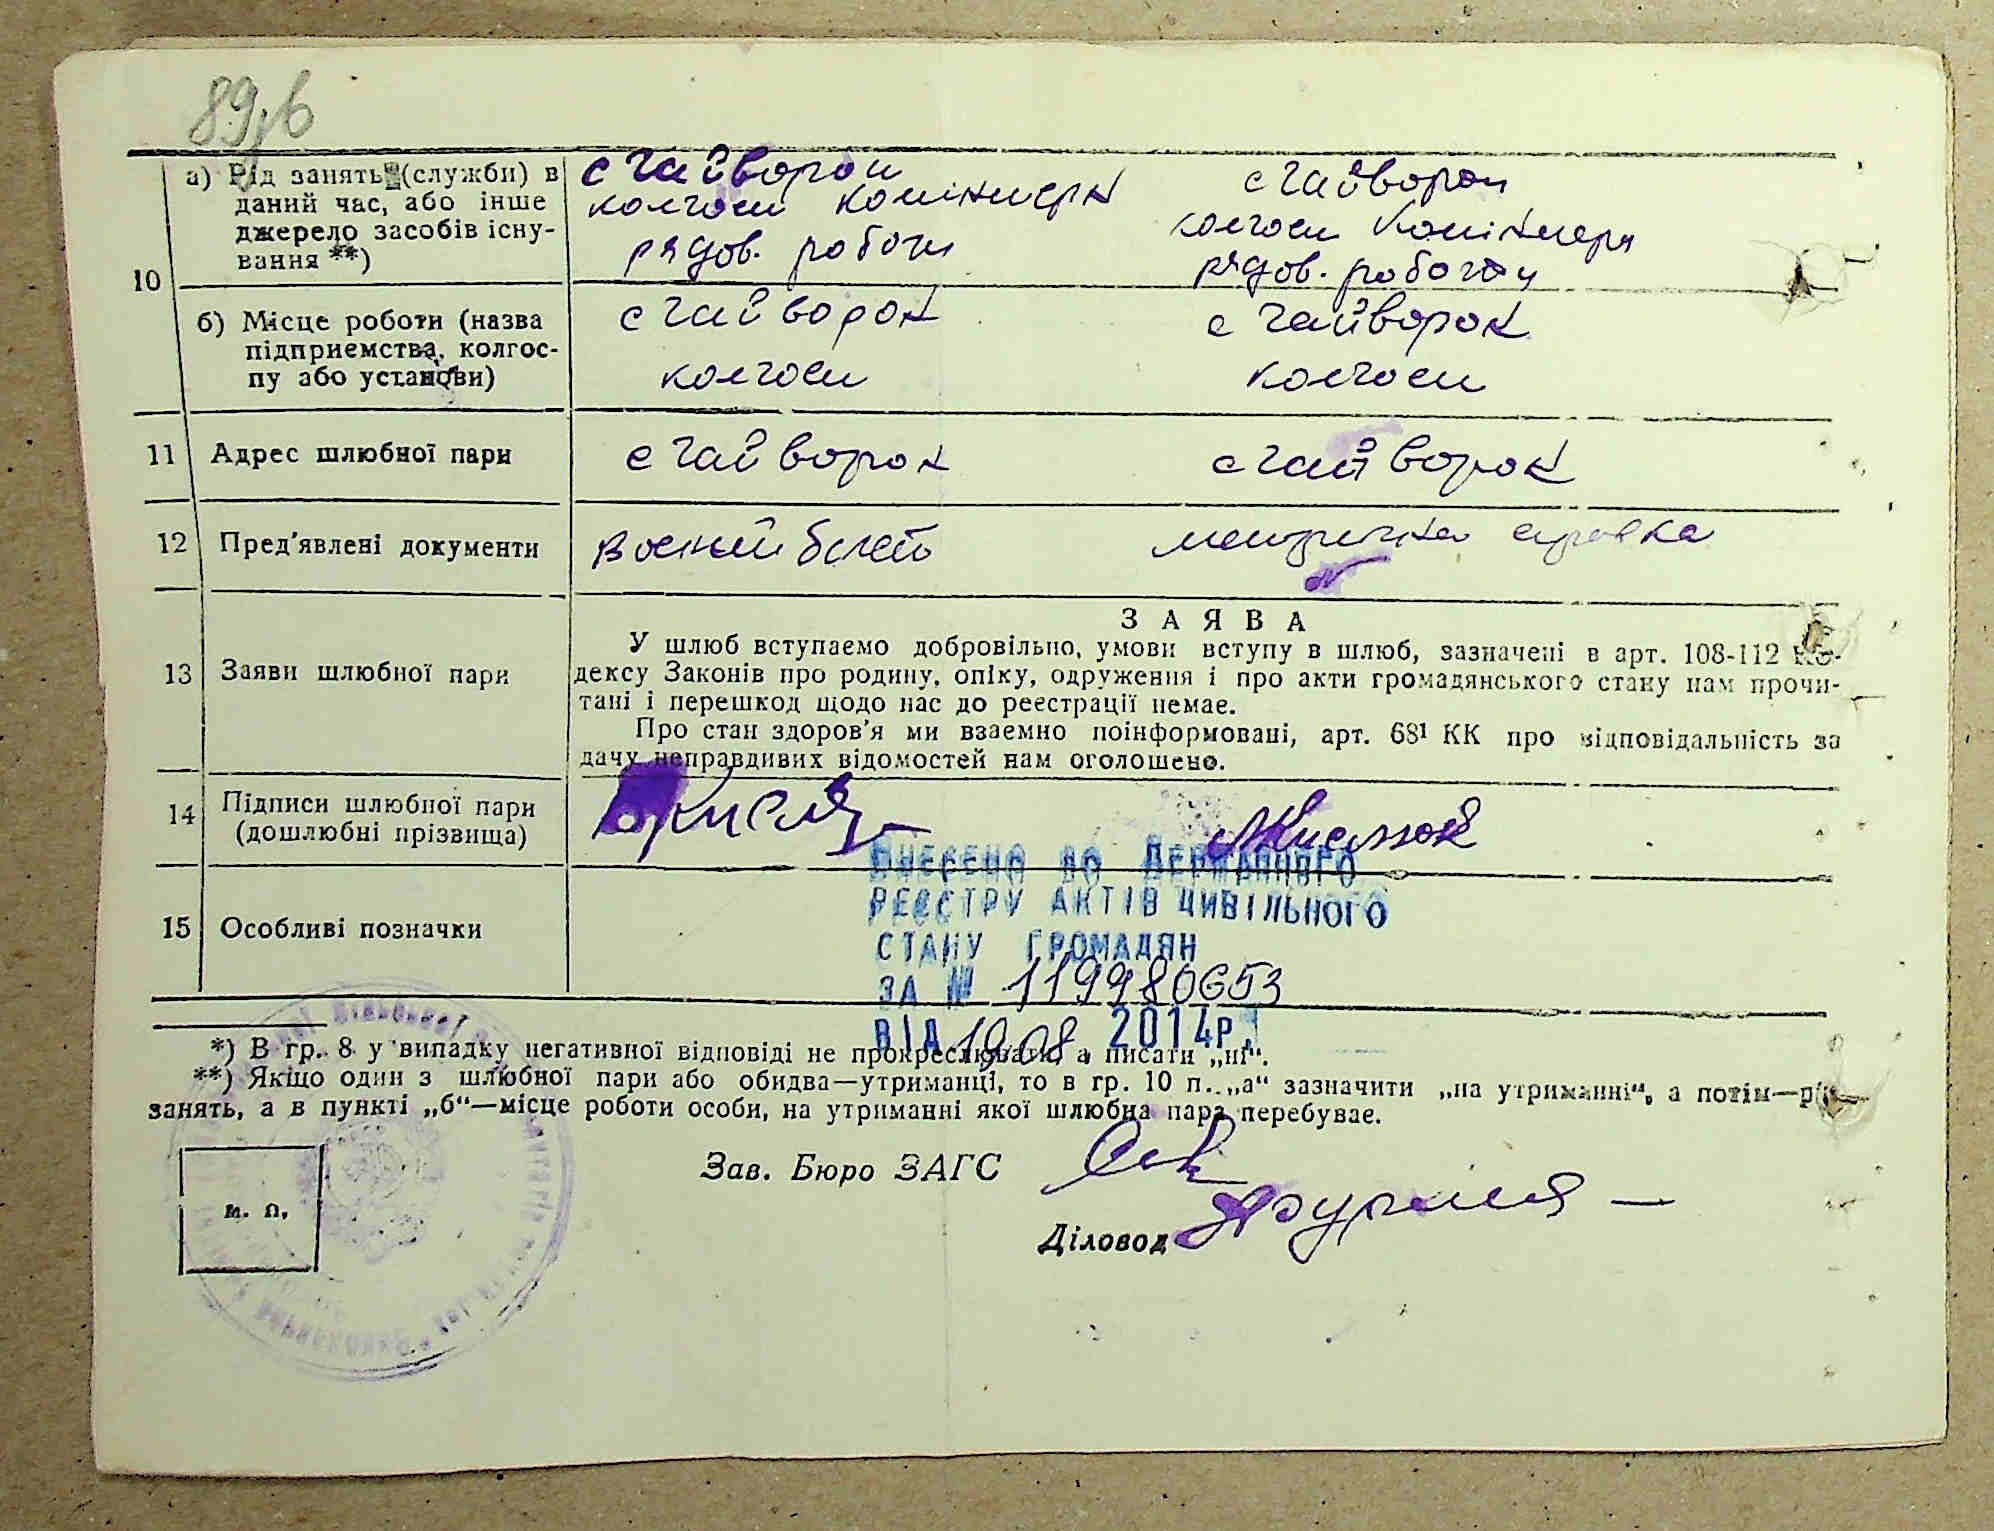 89,в
10
а) Рід занять (служби) в
даний час, або інше
джерело засобів існу-
вання **)
с Гайворон
колгосп комінтерн
рядов. робочи
с Гайворон
колгосп комінтерн
рядов. робочи
б) Місце роботи (назва
підприємства, колгос-
пу або установи)
с Гайворон
колгосп
с Гайворон
колгосп
11 Адрес шлюбної пари
с Гайворон
с Гайворон
12 Пред'явлені документи
воений білет
метрична справка
13 Заяви шлюбної пари
ЗАЯВА
У шлюб вступаємо добровільно, умови вступу в шлюб, зазначені в арт. 108-112 Ко-
дексу Законів про родину, опіку, одруження і про акти громадянського стану нам прочи-
тані і перешкод щодо нас до реєстрації немає.
Про стан здоров'я ми взаємно поінформовані, арт. 68¹ КК про відповідальність за
дачу неправдивих відомостей нам оголошено.
14 Підписи шлюбної пари
(дошлюбні прізвища)
15 Особливі позначки
ВНЕСЕНО ДО ДЕРЖАВНОГО
РЕЄСТРУ АКТІВ ЦИВІЛЬНОГО
СТАНУ ГРОМАДЯН
ЗА № 119980653
ВІД 19.08. 2014р.
*) В гр. 8 у випадку негативної відповіді не прокреслювати, а писати „ні“.
**) Якщо один з шлюбної пари або обидва—утриманці, то в гр. 10 п. „а“ зазначити „на утриманні“, а потім—рід
занять, а в пункті „б“—місце роботи особи, на утриманні якої шлюбна пара перебуває.
м. п.
Зав. Бюро ЗАГС
Діловод